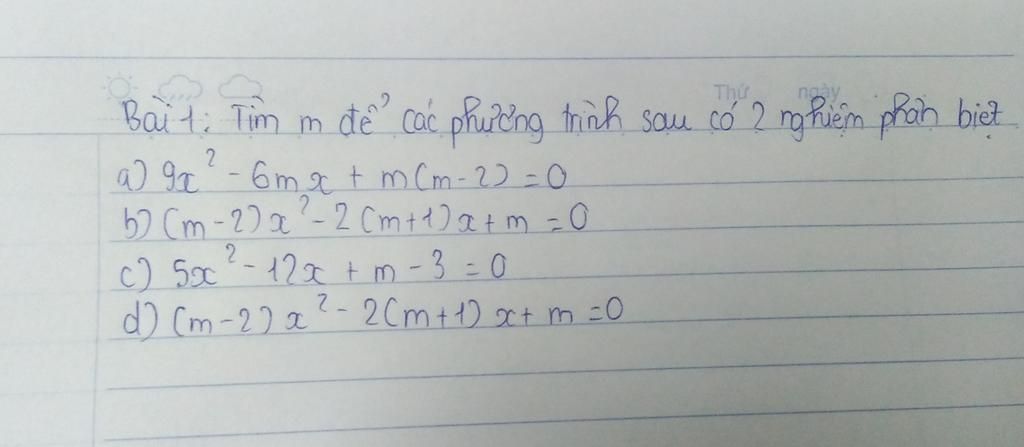 Thứ ngày
Bài 1: Tìm m để các phương trình sau có 2 nghiệm phân biệt
a) 9x² - 6mx + m(m-2) = 0
b) (m-2)x² - 2(m+1)x + m = 0
c) 5x² - 12x + m - 3 = 0
d) (m-2)x² - 2(m+1)x + m = 0